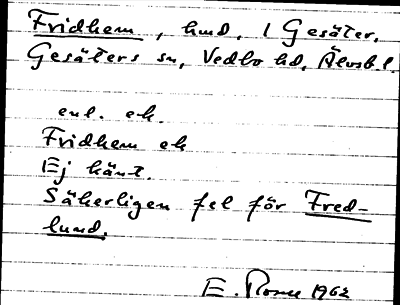 Fridhem, hmd. 1 Gesäter.
Gesäters sn, Vedbo hd, Älvsb.l.
enl. ek.
Fridhem ek
Ej känt.
Säkerligen fel för Fred-
lund.
E. 1962